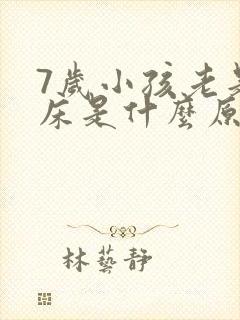 7歲小孩老是
床是什麼原
林藝靜